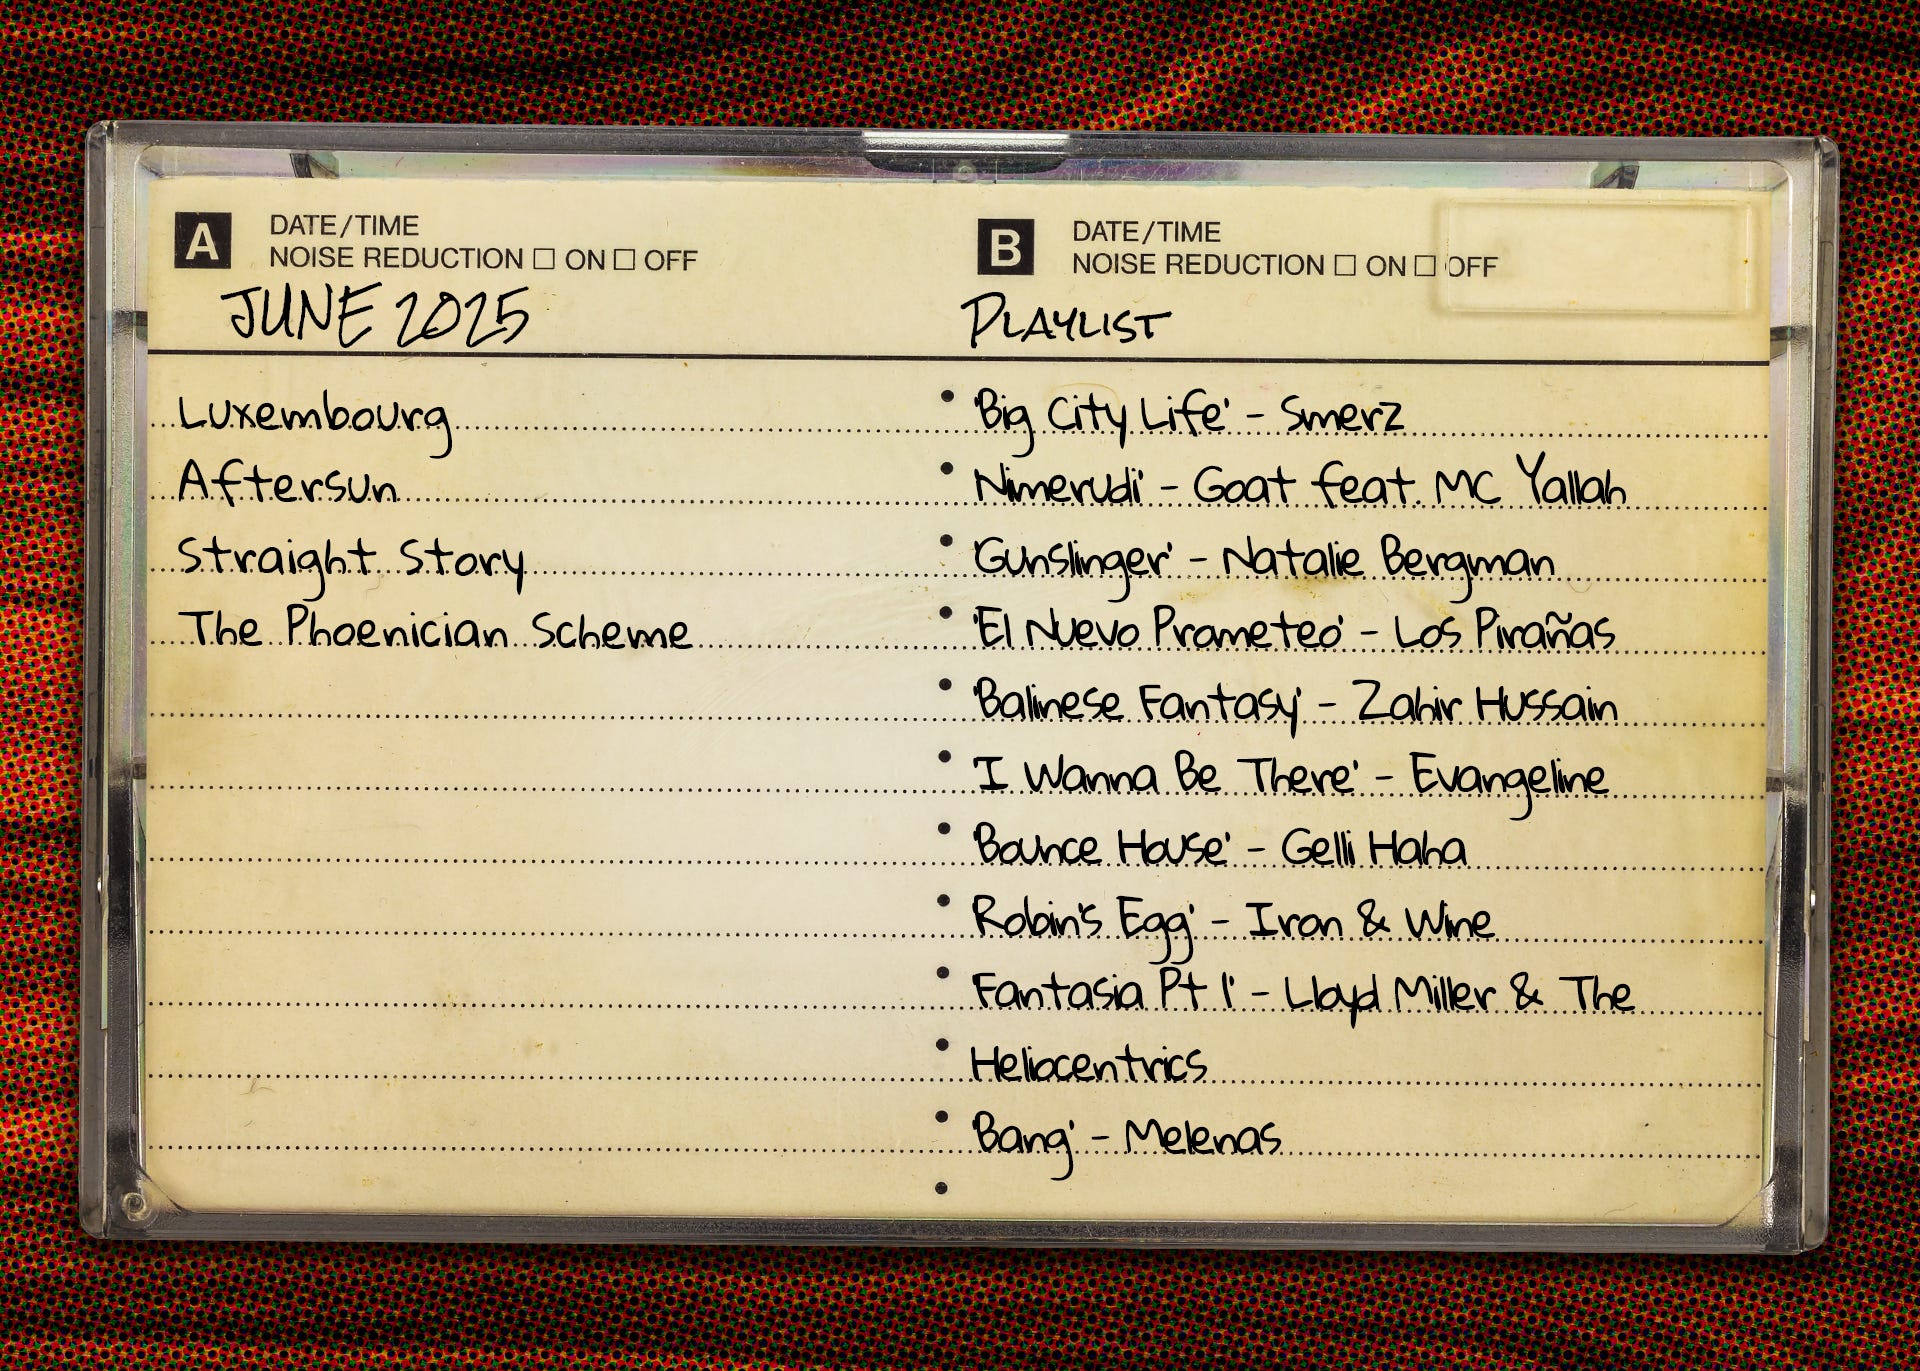 A
DATE/TIME
NOISE REDUCTION □ ON □ OFF
JUNE 2025
Luxembourg
Aftersun
Straight Story
The Phoenician Scheme
B
DATE/TIME
NOISE REDUCTION □ ON □ OFF
PLAYLIST
• 'Big City Life' - Smerz
• 'Nimerudi' - Goat feat. MC Yallah
• 'Gunslinger' - Natalie Bergman
• 'El Nuevo Prometeo' - Los Pirañas
• 'Balinese Fantasy' - Zahir Hussain
• 'I Wanna Be There' - Evangeline
• 'Bounce House' - Gelli Haha
• 'Robin's Egg' - Iron & Wine
• 'Fantasia Pt 1' - Lloyd Miller & The
• Heliocentrics
• 'Bang' - Melenas
•